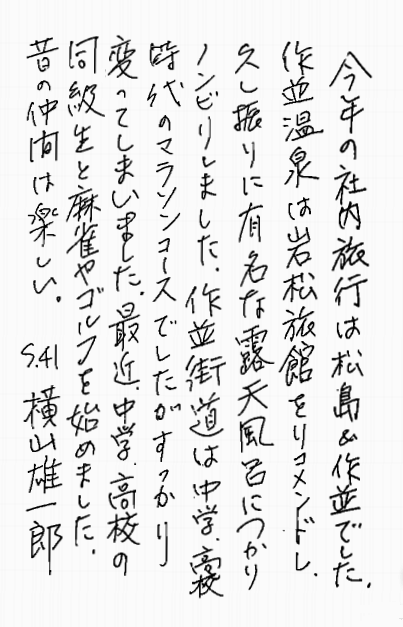 今年の社内旅行は松島&作並でした。
作並温泉は岩松旅館をリコメンドし、
久し振りに有名な露天風呂につかり
ノンビリしました。作並街道は中学、高校
時代のマラソンコースでしたがすっかり
変ってしまいました。最近、中学、高校の
同級生と麻雀やゴルフを始めました。
昔の仲間は楽しい。 S.41 横山雄一郎